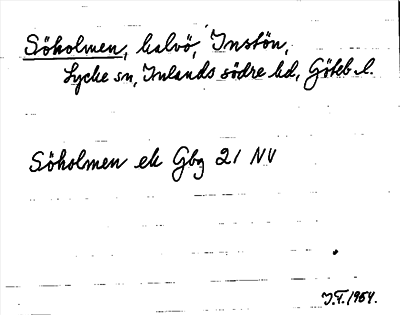 Söholmen, halvö, Instön,
Lycke sn, Inlands södre hd, Göteb. l.
Söholmen ek Gbg 21 NV
J.F. 1954.